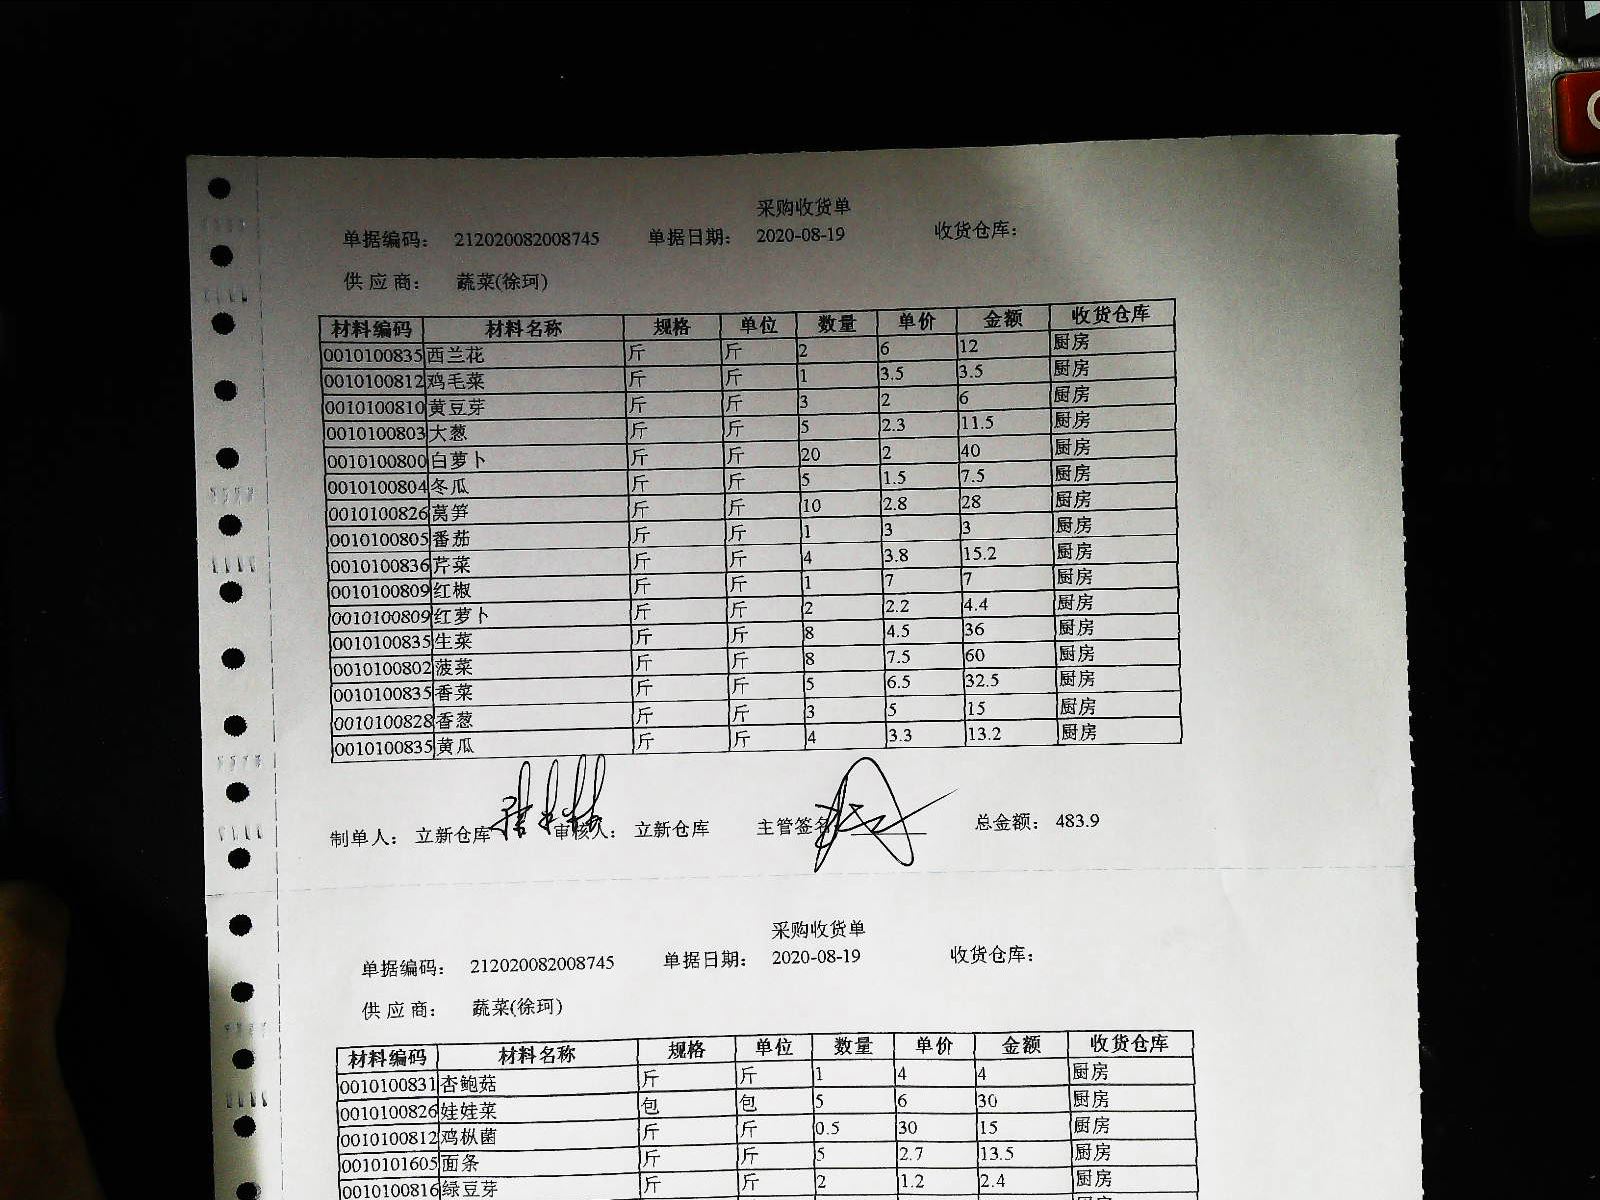 采购收货单
单据编码： 212020082008745 单据日期： 2020-08-19 收货仓库：
供 应 商： 蔬菜(徐珂)
材料编码 材料名称 规格 单位 数量 单价 金额 收货仓库
0010100835 西兰花 斤 斤 2 6 12 厨房
0010100812 鸡毛菜 斤 斤 1 3.5 3.5 厨房
0010100810 黄豆芽 斤 斤 3 2 6 厨房
0010100803 大葱 斤 斤 5 2.3 11.5 厨房
0010100800 白萝卜 斤 斤 20 2 40 厨房
0010100804 冬瓜 斤 斤 5 1.5 7.5 厨房
0010100826 莴笋 斤 斤 10 2.8 28 厨房
0010100805 番茄 斤 斤 1 3 3 厨房
0010100836 芹菜 斤 斤 4 3.8 15.2 厨房
0010100809 红椒 斤 斤 1 7 7 厨房
0010100809 红萝卜 斤 斤 2 2.2 4.4 厨房
0010100835 生菜 斤 斤 8 4.5 36 厨房
0010100802 菠菜 斤 斤 8 7.5 60 厨房
0010100835 香菜 斤 斤 5 6.5 32.5 厨房
0010100828 香葱 斤 斤 3 5 15 厨房
0010100835 黄瓜 斤 斤 4 3.3 13.2 厨房
制单人： 立新仓库 审核人： 立新仓库 主管签名 总金额： 483.9
采购收货单
单据编码： 212020082008745 单据日期： 2020-08-19 收货仓库：
供 应 商： 蔬菜(徐珂)
材料编码 材料名称 规格 单位 数量 单价 金额 收货仓库
0010100831 杏鲍菇 斤 斤 1 4 4 厨房
0010100826 娃娃菜 包 包 5 6 30 厨房
0010100812 鸡枞菌 斤 斤 0.5 30 15 厨房
0010101605 面条 斤 斤 5 2.7 13.5 厨房
0010100816 绿豆芽 斤 斤 2 1.2 2.4 厨房